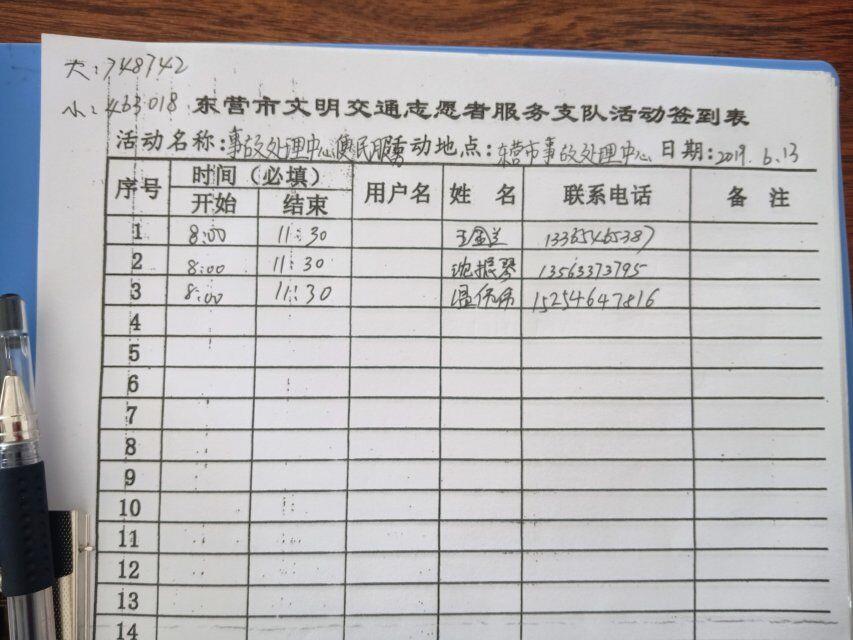 大:748742
小:463018 东营市文明交通志愿者服务支队活动签到表
活动名称:事故处理中心便民服务 活动地点:东营市事故处理中心 日期:2019.6.13
序号 时间（必填） 用户名 姓 名 联系电话 备 注
开始 结束
1 8:00 11:30 王金兰 13365465387
2 8:00 11:30 沈振琴 13563373795
3 8:00 11:30 温伟伟 15254647816
4
5
6
7
8
9
10
11
12
13
14